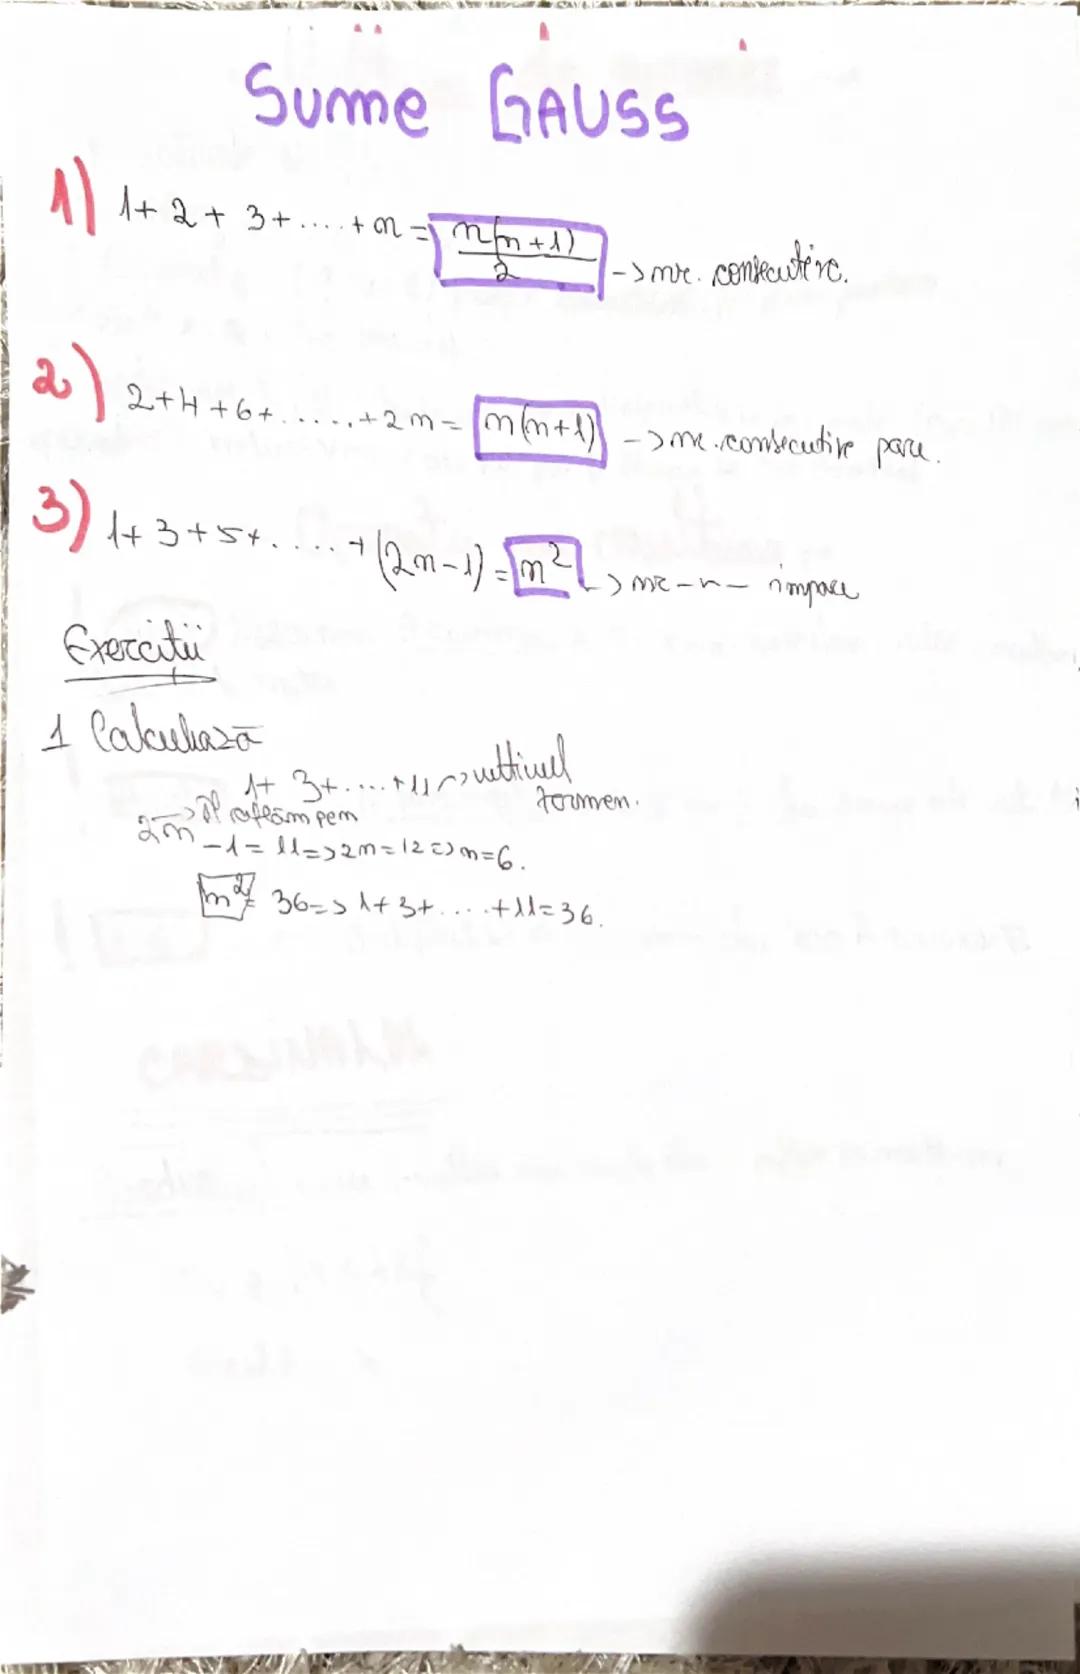 Sume GAUSS
1) 1+2+3+....+n = n(n+1)/2 -> nr. consecutive.
2) 2+4+6+......+2n = n(n+1) -> nr. consecutive pare.
3) 1+3+5+.....+(2n-1) = n² -> nr -n- impare
Exerciții
1 Calculează
1+3+....+11 -> ultimul termen.
-> Îl aflăm pe n
2n-1=11=>2n=12=>n=6.
n²=36=>1+3+....+11=36.